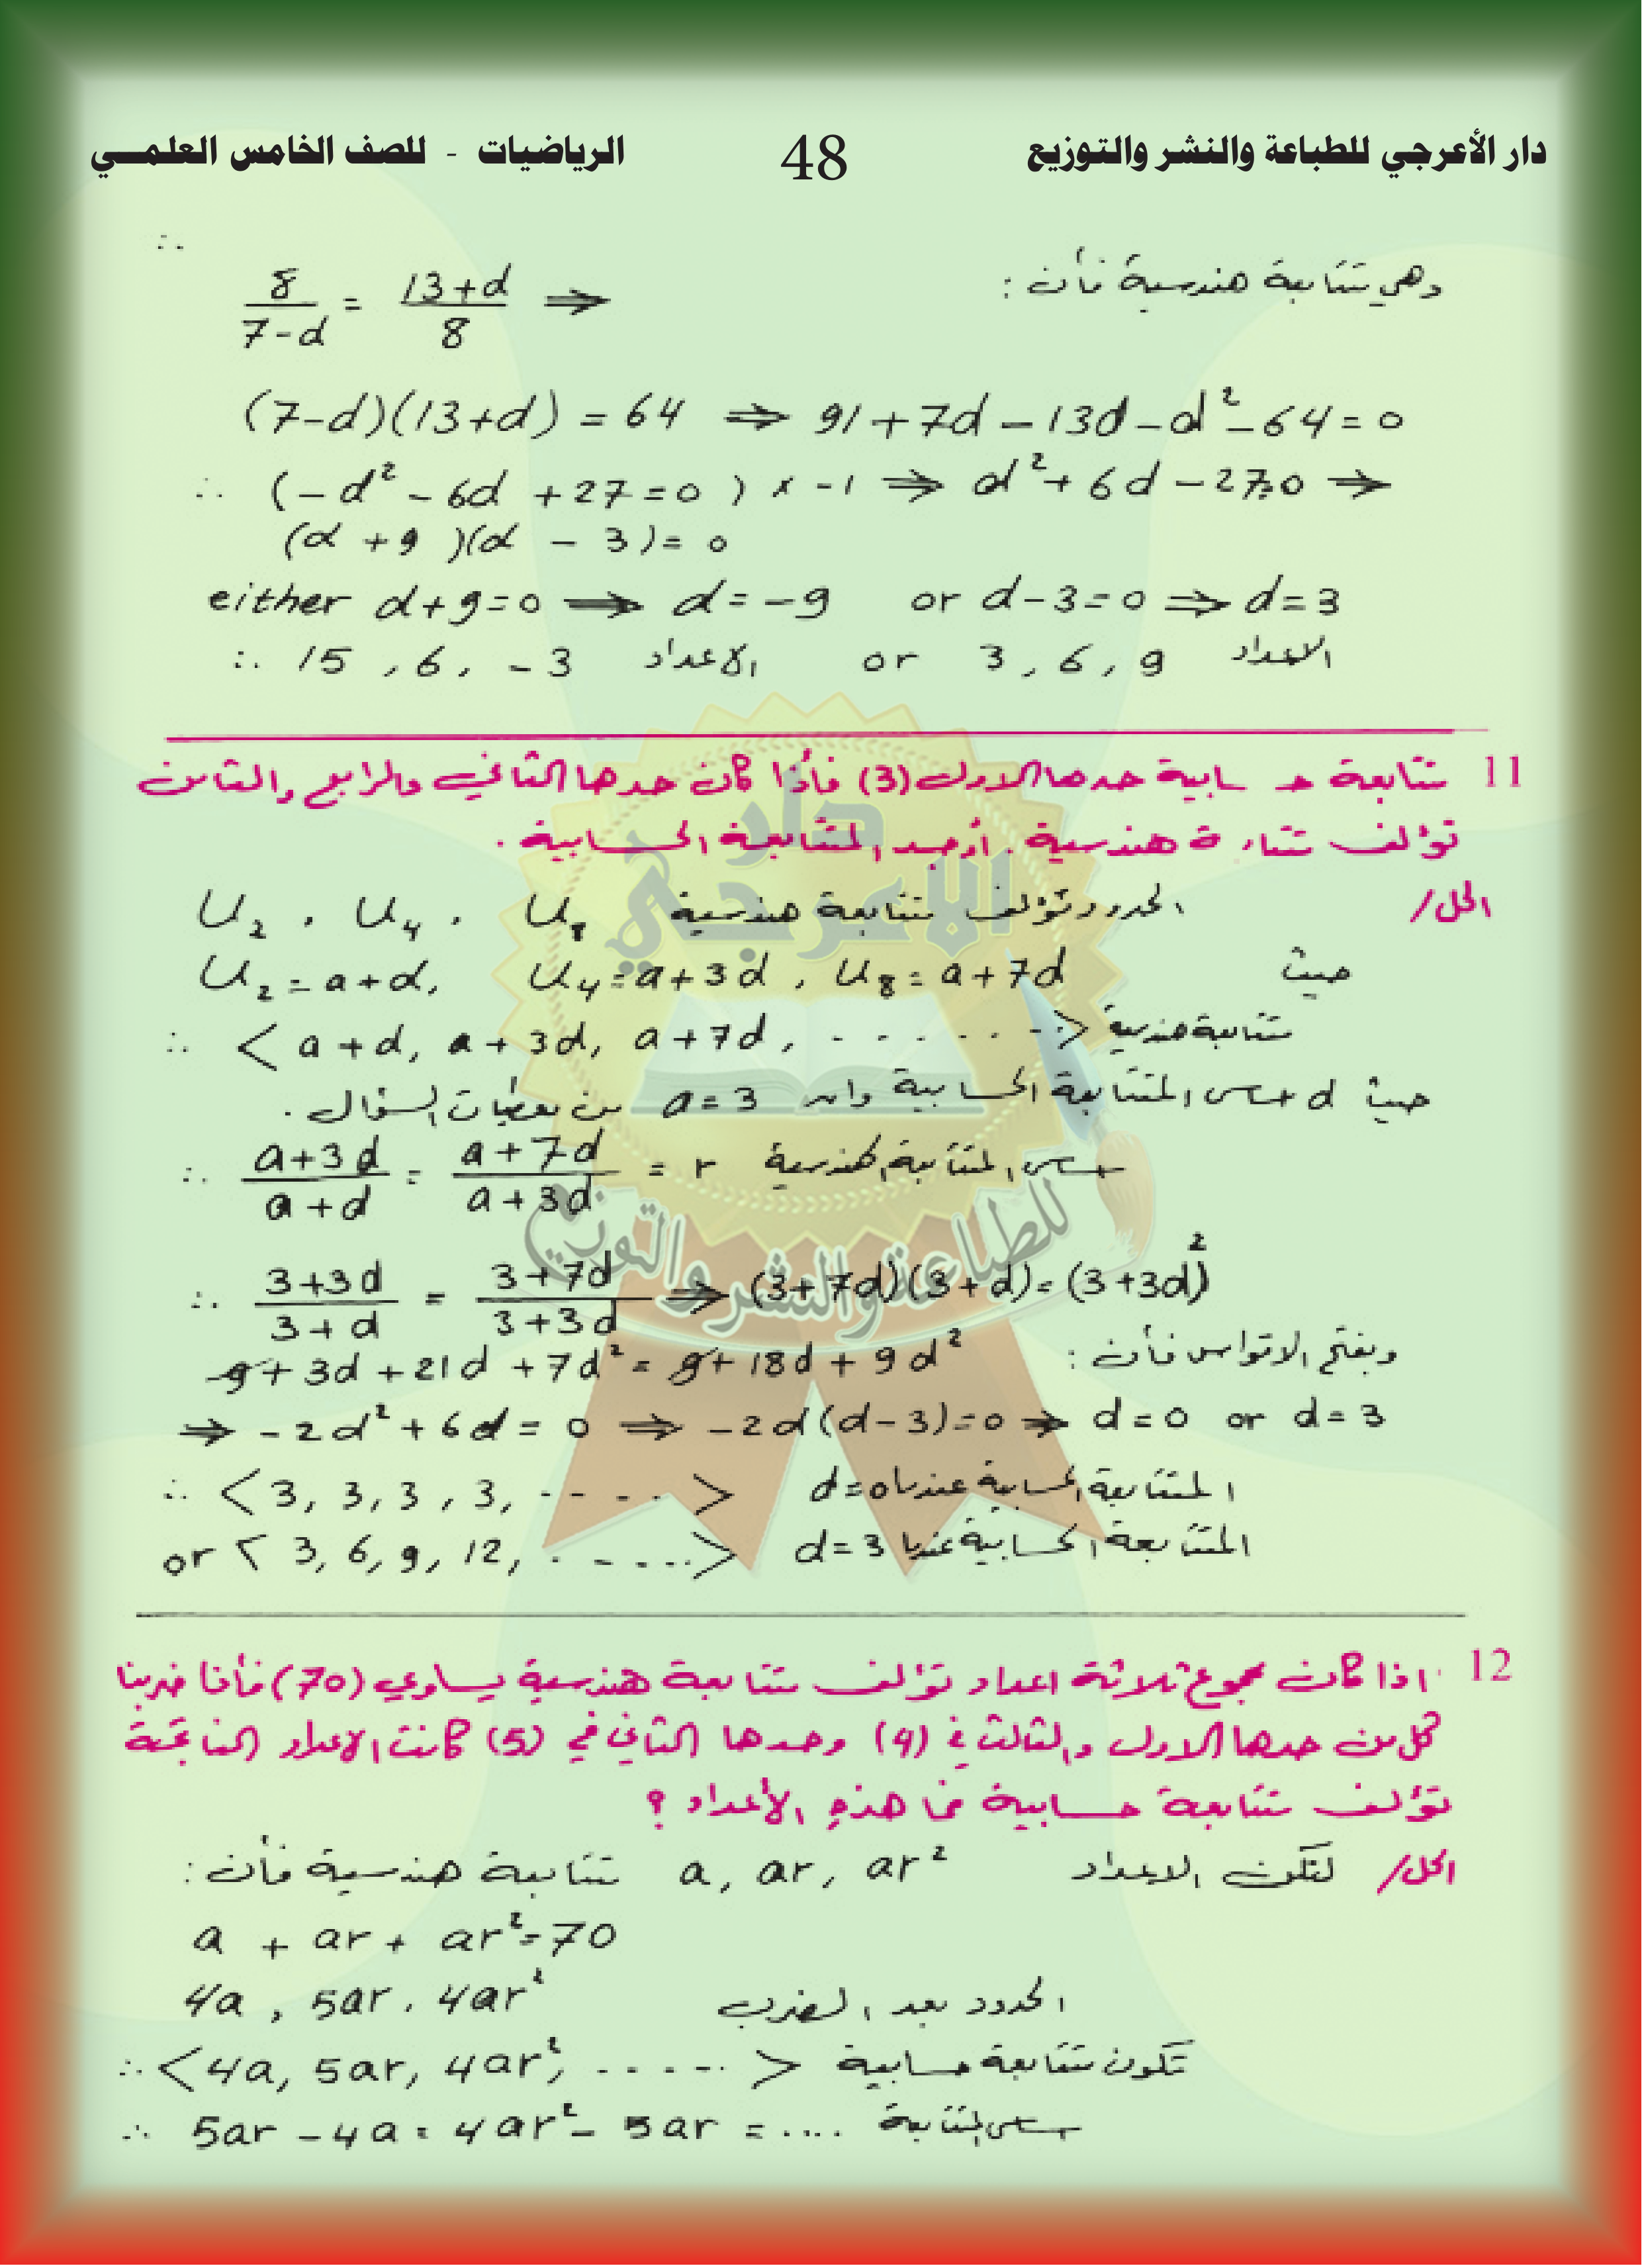 دار الأعرجي للطباعة والنشر والتوزيع 48 الرياضيات - للصف الخامس العلمـــي
وهي متتابعة هندسية فأن :
∴ 8/(7-d) = (13+d)/8 ⇒
(7-d)(13+d) = 64 ⇒ 91+7d-13d-d²-64=0
∴ (-d²-6d+27=0) × -1 ⇒ d²+6d-27=0 ⇒
(d+9)(d-3)=0
either d+9=0 ⇒ d=-9 or d-3=0 ⇒ d=3
∴ 15, 6, -3 الاعداد or 3, 6, 9 الاعداد
11 متتابعة حسابية حدها الاول (3) فأذا كان حدها الثاني والرابع والثامن
تؤلف متتا ة هندسية . أوجد المتتابعة الحسابية .
الحل/ الحدود تؤلف متتابعة هندسية U₂ , U₄ , U₈
حيث U₂=a+d, U₄=a+3d, U₈=a+7d
∴ <a+d, a+3d, a+7d, ......> متتابعة هندسية
حيث d اساس المتتابعة الحسابية وان a=3 من معطيات السؤال .
∴ (a+3d)/(a+d) = (a+7d)/(a+3d) = r اساس المتتابعة الهندسية
∴ (3+3d)/(3+d) = (3+7d)/(3+3d) ⇒ (3+7d)(3+d)=(3+3d)²
وبفتح الاقواس فأن :
9+3d+21d+7d²=9+18d+9d²
⇒ -2d²+6d=0 ⇒ -2d(d-3)=0 ⇒ d=0 or d=3
∴ <3, 3, 3, 3, .....> المتتابعة الحسابية عندما d=0
or <3, 6, 9, 12, ......> المتتابعة الحسابية عندما d=3
12 اذا كان مجموع ثلاثة اعداد تؤلف متتابعة هندسية يساوي (70) فأذا ضربنا
كل من حدها الاول والثالث في (4) وحدها الثاني في (5) كانت الاعداد الناتجة
تؤلف متتابعة حسابية فما هذه الأعداد ؟
الحل/ لتكن الاعداد a, ar, ar² متتابعة هندسية فأن :
a + ar + ar²=70
4a, 5ar, 4ar² الحدود بعد الضرب
∴ <4a, 5ar, 4ar², ......> تكون متتابعة حسابية
∴ 5ar-4a=4ar²-5ar=.... اساس المتتابعة
دار
الاعرجي
للطباعة والنشر والتوزيع